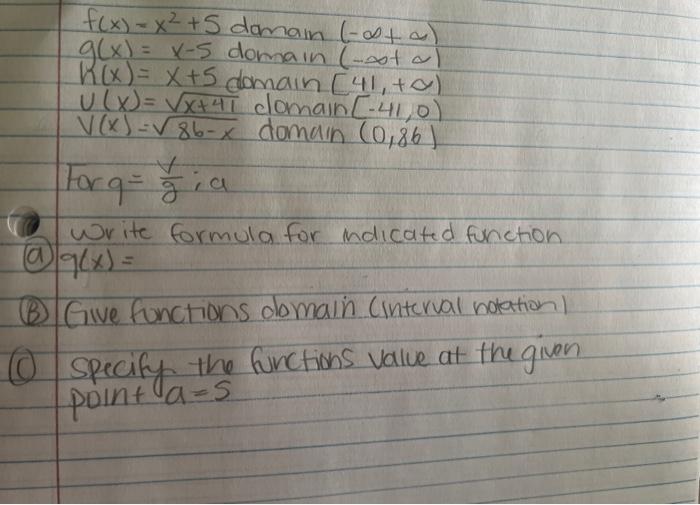 f(x) = x² + 5 domain (-∞ + ∞)
g(x) = x-5 domain (-∞ + ∞)
h(x) = x+5 domain [41, +∞)
U(x) = √x+41 domain [-41,0)
V(x) = √86-x domain (0,86]
For q = v/g ; a
Write formula for indicated function
(a) q(x) =
(B) Give functions domain (interval notation)
(C) specify the functions value at the given
point a = 5